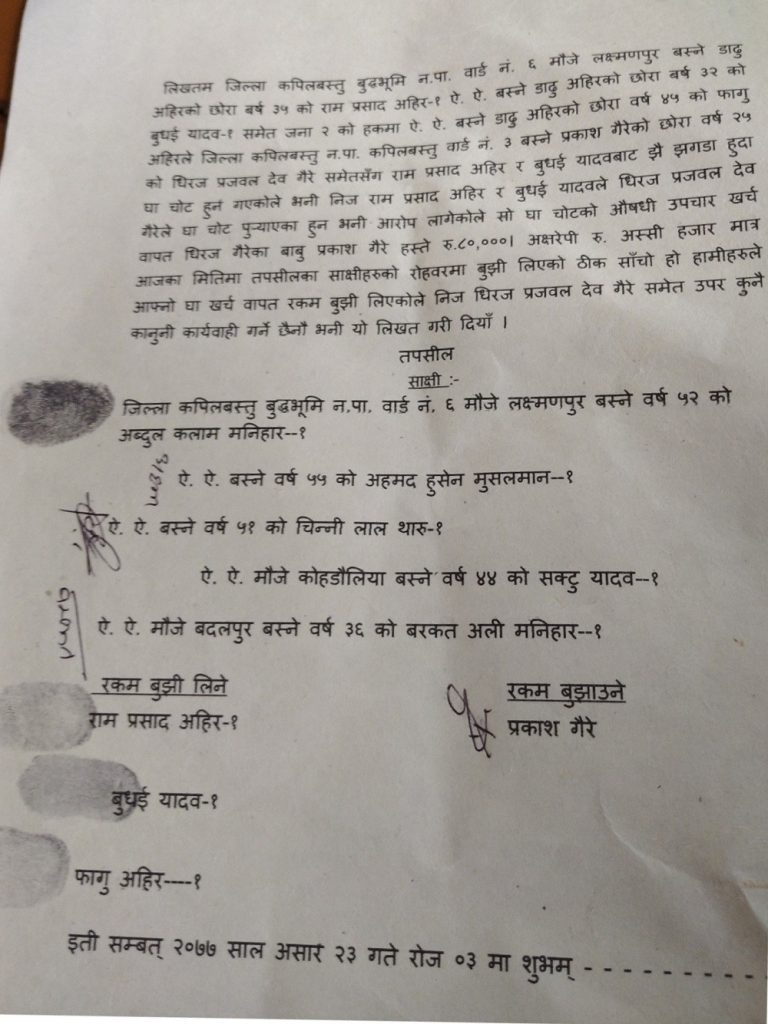 लिखतम जिल्ला कपिलबस्तु बुद्धभूमि न.पा. वार्ड नं. ६ मौजे लक्ष्मणपुर बस्ने डाढु
अहिरको छोरा बर्ष ३५ को राम प्रसाद अहिर-१ ऐ. ऐ. बस्ने डाढु अहिरको छोरा बर्ष ३२ को
बुधई यादव-१ समेत जना २ को हकमा ऐ. ऐ. बस्ने डाढु अहिरको छोरा वर्ष ४५ को फागु
अहिरले जिल्ला कपिलबस्तु न.पा. कपिलबस्तु वार्ड नं. ३ बस्ने प्रकाश गैरेको छोरा वर्ष २५
को धिरज प्रजवल देव गैरे समेतसँग राम प्रसाद अहिर र बुधई यादवबाट झै झगडा हुदा
घा चोट हुन गएकोले भनी निज राम प्रसाद अहिर र बुधई यादवले धिरज प्रजवल देव
गैरेले घा चोट पुऱ्याएका हुन भनी आरोप लागेकोले सो घा चोटको औषधी उपचार खर्च
वापत धिरज गैरेका बाबु प्रकाश गैरे हस्ते रु.८०,०००। अक्षरेपी रु. अस्सी हजार मात्र
आजका मितिमा तपसीलका साक्षीहरुको रोहवरमा बुझी लिएको ठीक साँचो हो हामीहरुले
आफ्नो घा खर्च वापत रकम बुझी लिएकोले निज धिरज प्रजवल देव गैरे समेत उपर कुनै
कानुनी कार्यवाही गर्ने छैनौ भनी यो लिखत गरी दियौँ ।
तपसील
साक्षी :-
जिल्ला कपिलबस्तु बुद्धभूमि न.पा. वार्ड नं. ६ मौजे लक्ष्मणपुर बस्ने वर्ष ५२ को
अब्दुल कलाम मनिहार--१
ऐ. ऐ. बस्ने वर्ष ५५ को अहमद हुसेन मुसलमान--१
ऐ. ऐ. बस्ने वर्ष ५१ को चिन्नी लाल थारु-१
ऐ. ऐ. मौजे कोहडौलिया बस्ने वर्ष ४४ को सक्टु यादव--१
ऐ. ऐ. मौजे बदलपुर बस्ने वर्ष ३६ को बरकत अली मनिहार--१
रकम बुझी लिने
रकम बुझाउने
राम प्रसाद अहिर-१
प्रकाश गैरे
बुधई यादव-१
फागु अहिर----१
इती सम्बत् २०७७ साल असार २३ गते रोज ०३ मा शुभम् - - - - - - - - -